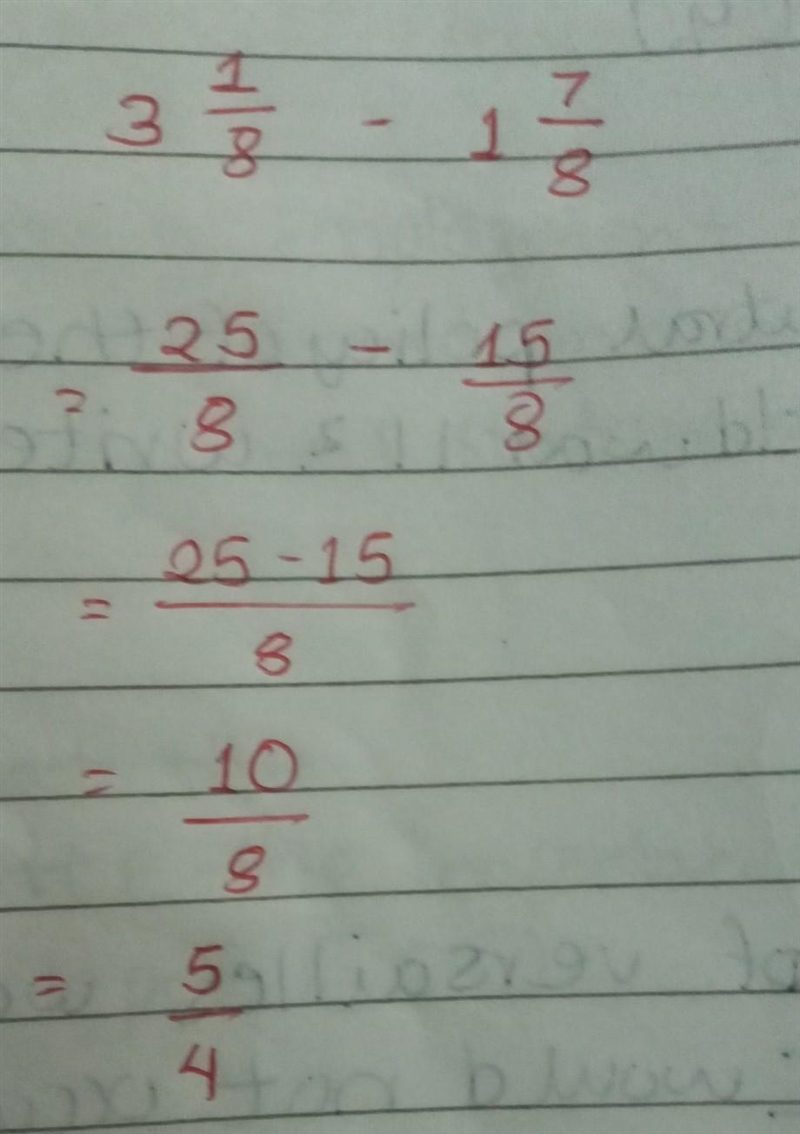 3 1/8 - 1 7/8
= 25/8 - 15/8
= 25 - 15/8
= 10/8
= 5/4